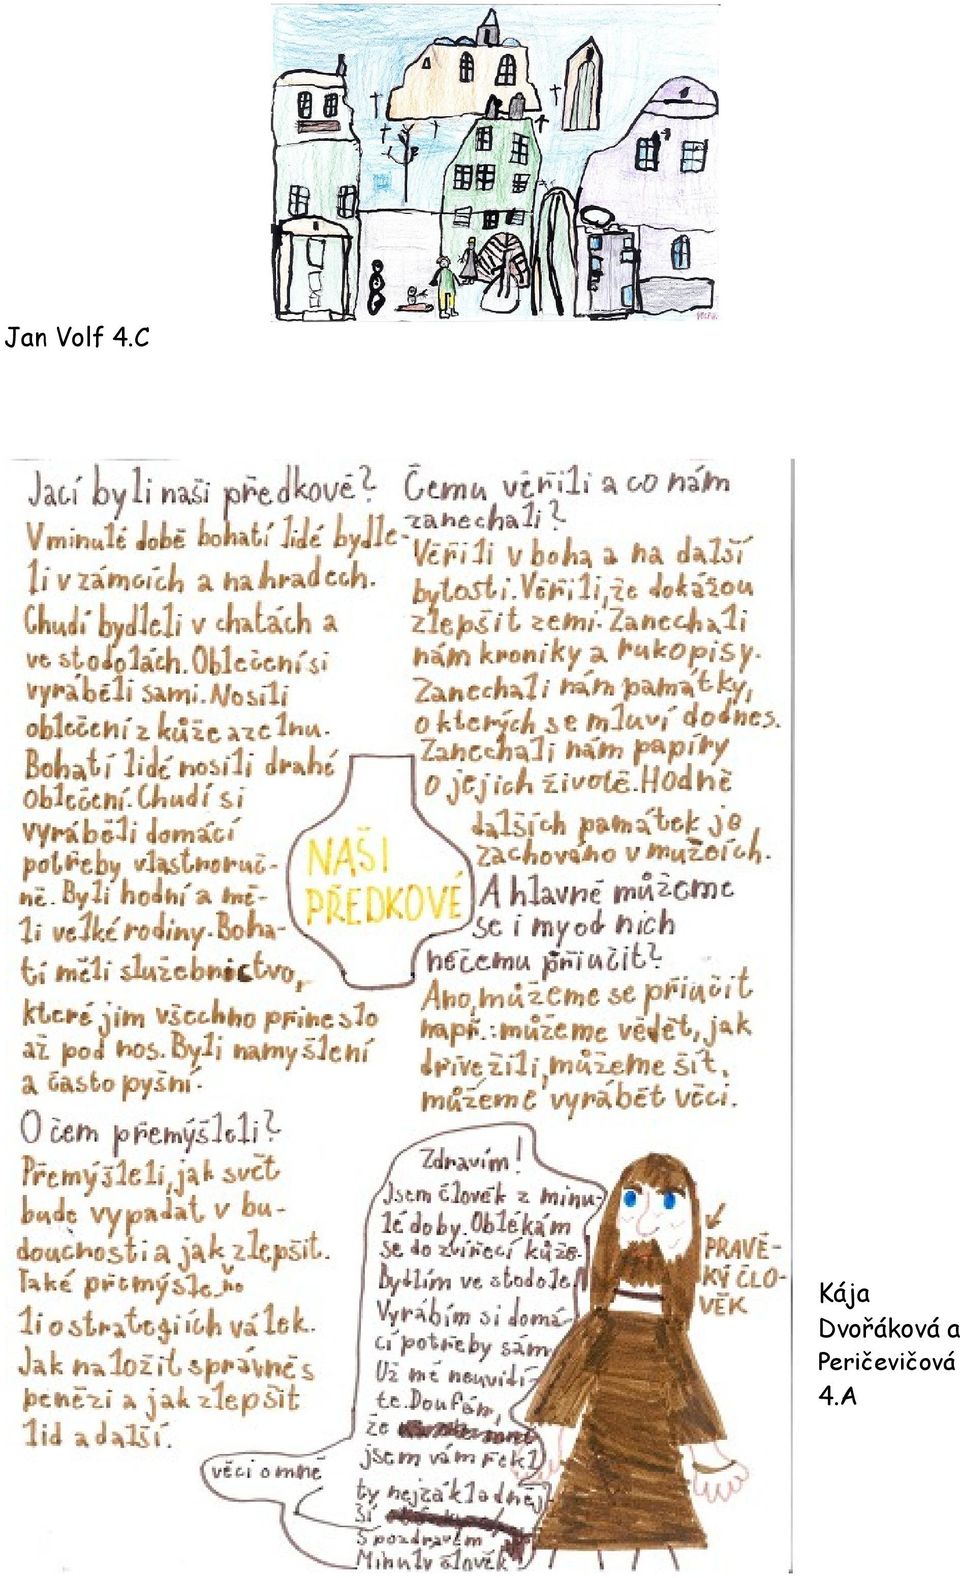 Jan Volf 4.C
Jací byli naši předkové?
V minulé době bohatí lidé bydle-
li v zámcích a na hradech.
Chudí bydleli v chatách a
ve stodolách. Oblečení si
vyráběli sami. Nosili
oblečení z kůže a ze lnu.
Bohatí lidé nosili drahé
oblečení. Chudí si
vyráběli domácí
potřeby vlastnoruč-
ně. Byli hodní a mě-
li velké rodiny. Boha-
tí měli služebnictvo,
které jim všechno přineslo
až pod nos. Byli namyšlení
a často pyšní.
O čem přemýšleli?
Přemýšleli, jak svět
bude vypadat v bu-
doucnosti a jak zlepšit.
Také přemýšle
li o strategiích válek.
Jak naložit správně s
penězi a jak zlepšit
lid a další.
Čemu věřili a co nám
zanechali?
Věřili v boha a na další
bytosti. Věřili, že dokážou
zlepšit zemi. Zanechali
nám kroniky a rukopisy.
Zanechali nám památky,
o kterých se mluví dodnes.
Zanechali nám papíry
o jejich životě. Hodně
dalších památek je
zachováno v muzeích.
A hlavně můžeme
se i my od nich
něčemu přiučit?
Ano, můžeme se přiučit
např.: můžeme vědět, jak
dříve žili, můžeme šít,
můžeme vyrábět věci.
NAŠI
PŘEDKOVÉ
Zdravím!
Jsem člověk z minu-
lé doby. Oblékám
se do zvířecí kůže.
Bydlím ve stodole!
Vyrábím si domá-
cí potřeby sám
Už mě neuvidí-
te. Doufám,
že
jsem vám řekl
ty nejzákladněj-
ší
S pozdravem
Minulý člověk!
věci o mně
PRAVĚ-
KÝ ČLO-
VĚK
Kája
Dvořáková a
Peričevičová
4.A